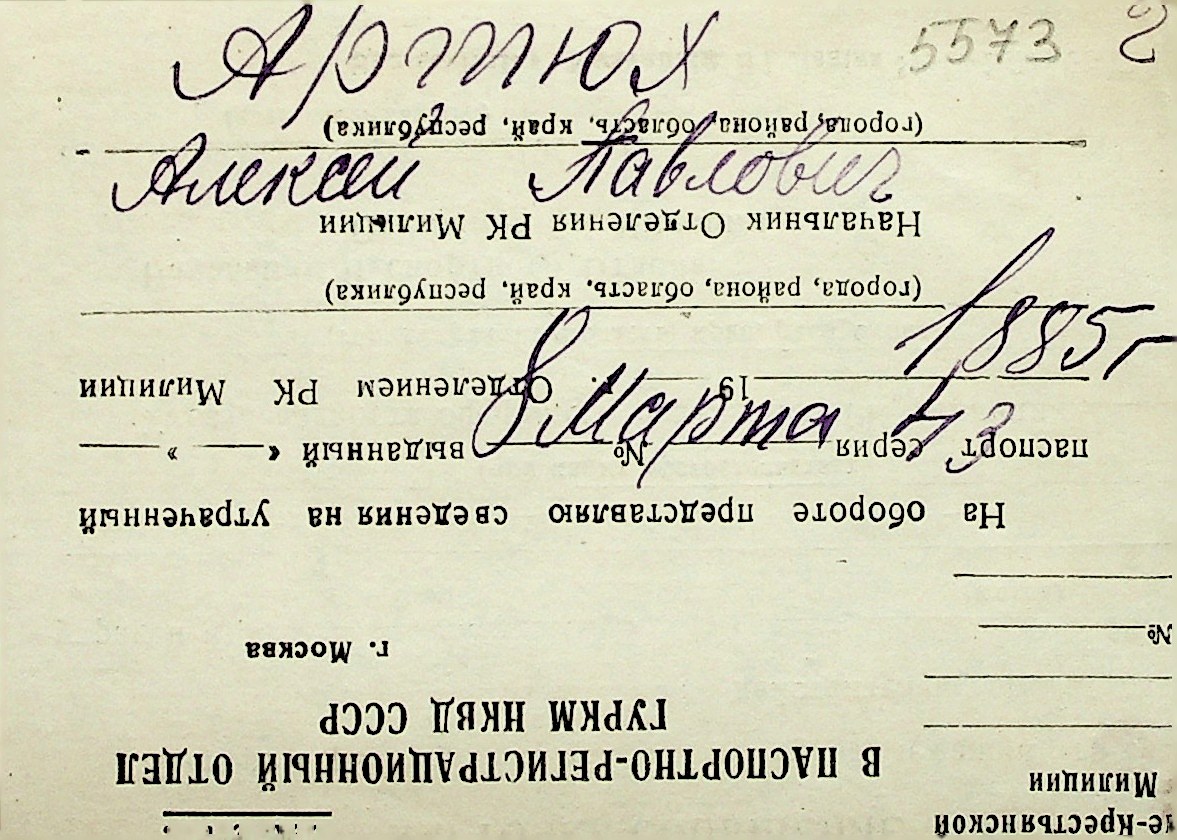 Артюх 5573 2
Алексей Павлович
1885 г
8 Марта 43
е-Крестьянской
Милиции
В ПАСПОРТНО-РЕГИСТРАЦИОННЫЙ ОТДЕЛ
ГУРКМ НКВД СССР
г. Москва
№
На обороте представляю сведения на утраченный
паспорт серия № выданный « »
19 г. Отделением РК Милиции
(города, района, область, край, республика)
Начальник Отделения РК Милиции
(города, района, область, край, республика)